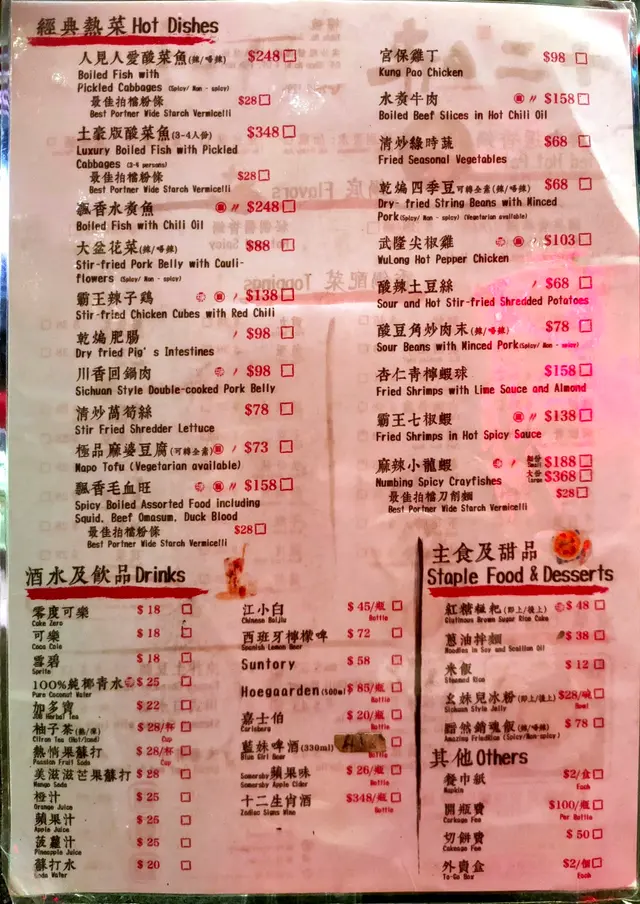 經典熱菜 Hot Dishes
人見人愛酸菜魚(辣/唔辣) $248
Boiled Fish with
Pickled Cabbages (Spicy/ Non - spicy)
最佳拍檔粉條 $28
Best Partner Wide Starch Vermicelli
土豪版酸菜魚(3-4人份) $348
Luxury Boiled Fish with Pickled
Cabbages (3-4 persons)
最佳拍檔粉條 $28
Best Partner Wide Starch Vermicelli
飄香水煮魚 $248
Boiled Fish with Chili Oil
大盆花菜(辣/唔辣) $88
Stir-fried Pork Belly with Cauli-
flowers (Spicy/ Non - spicy)
霸王辣子鷄 $138
Stir-fried Chicken Cubes with Red Chili
乾煸肥腸 $98
Dry fried Pig's Intestines
川香回鍋肉 $98
Sichuan Style Double-cooked Pork Belly
清炒萵筍絲 $78
Stir Fried Shredder Lettuce
極品麻婆豆腐(可轉全素) $73
Mapo Tofu (Vegetarian available)
飄香毛血旺 $158
Spicy Boiled Assorted Food including
Squid, Beef Omasum, Duck Blood
最佳拍檔粉條 $28
Best Partner Wide Starch Vermicelli
宮保雞丁 $98
Kung Pao Chicken
水煮牛肉 $158
Boiled Beef Slices in Hot Chili Oil
清炒綠時蔬 $68
Fried Seasonal Vegetables
乾煸四季豆可轉全素(辣/唔辣) $68
Dry- fried String Beans with Minced
Pork(Spicy/ Non - spicy) (Vegetarian available)
武隆尖椒雞 $103
WuLong Hot Pepper Chicken
酸辣土豆絲 $68
Sour and Hot Stir-fried Shredded Potatoes
酸豆角炒肉末(辣/唔辣) $78
Sour Beans with Minced Pork(Spicy/ Non - spicy)
杏仁青檸蝦球 $158
Fried Shrimps with Lime Sauce and Almond
霸王七椒蝦 $138
Fried Shrimps in Hot Spicy Sauce
麻辣小龍蝦 $188
Numbing Spicy Crayfishes 大份 Large $368
最佳拍檔刀削麵 $28
Best Partner Wide Starch Vermicelli
酒水及飲品 Drinks
零度可樂 $ 18
Coke Zero
可樂 $ 18
Coca Cola
雪碧 $ 18
Sprite
100%純椰青水 $ 25
Pure Coconut Water
加多寶 $ 22
JDB Herbal Tea
柚子茶(熱/凍) $ 28/杯
Citron Tea (Hot/Iced) Cup
熱情果蘇打 $ 28/杯
Passion Fruit Soda Cup
美滋滋芒果蘇打 $ 28
Mango Soda
橙汁 $ 25
Orange Juice
蘋果汁 $ 25
Apple Juice
菠蘿汁 $ 25
Pineapple Juice
蘇打水 $ 20
Soda Water
江小白 $ 45/瓶
Chinese Baijiu Bottle
西班牙檸檬啤 $ 72
Spanish Lemon Beer
Suntory $ 58
Hoegaarden(500ml) $ 85/瓶
Bottle
嘉士伯 $ 20/瓶
Carlsberg Bottle
藍妹啤酒(330ml) 瓶
Blue Girl Beer Bottle
Somersby蘋果味 $ 26/瓶
Somersby Apple Cider Bottle
十二生肖酒 $348/瓶
Zodiac Signs Wine Bottle
主食及甜品
Staple Food & Desserts
紅糖糍粑(即上/後上) $ 48
Glutinous Brown Sugar Rice Cake
蔥油拌麵 $ 38
Noodles in Soy and Scallion Oil
米飯 $ 12
Steamed Rice
玄妹兒冰粉(即上/後上) $28/碗
Sichuan Style Jelly Bowl
黯然銷魂飯(辣/唔辣) $ 78
Amazing FriedRice (Spicy/Non-spicy)
其他 Others
餐巾紙 $2/食
Napkin Each
開瓶費 $100/瓶
Corkage Fee Per Bottle
切餅費 $ 50
Cakeage Fee
外賣盒 $2/個
To-Go Box Each